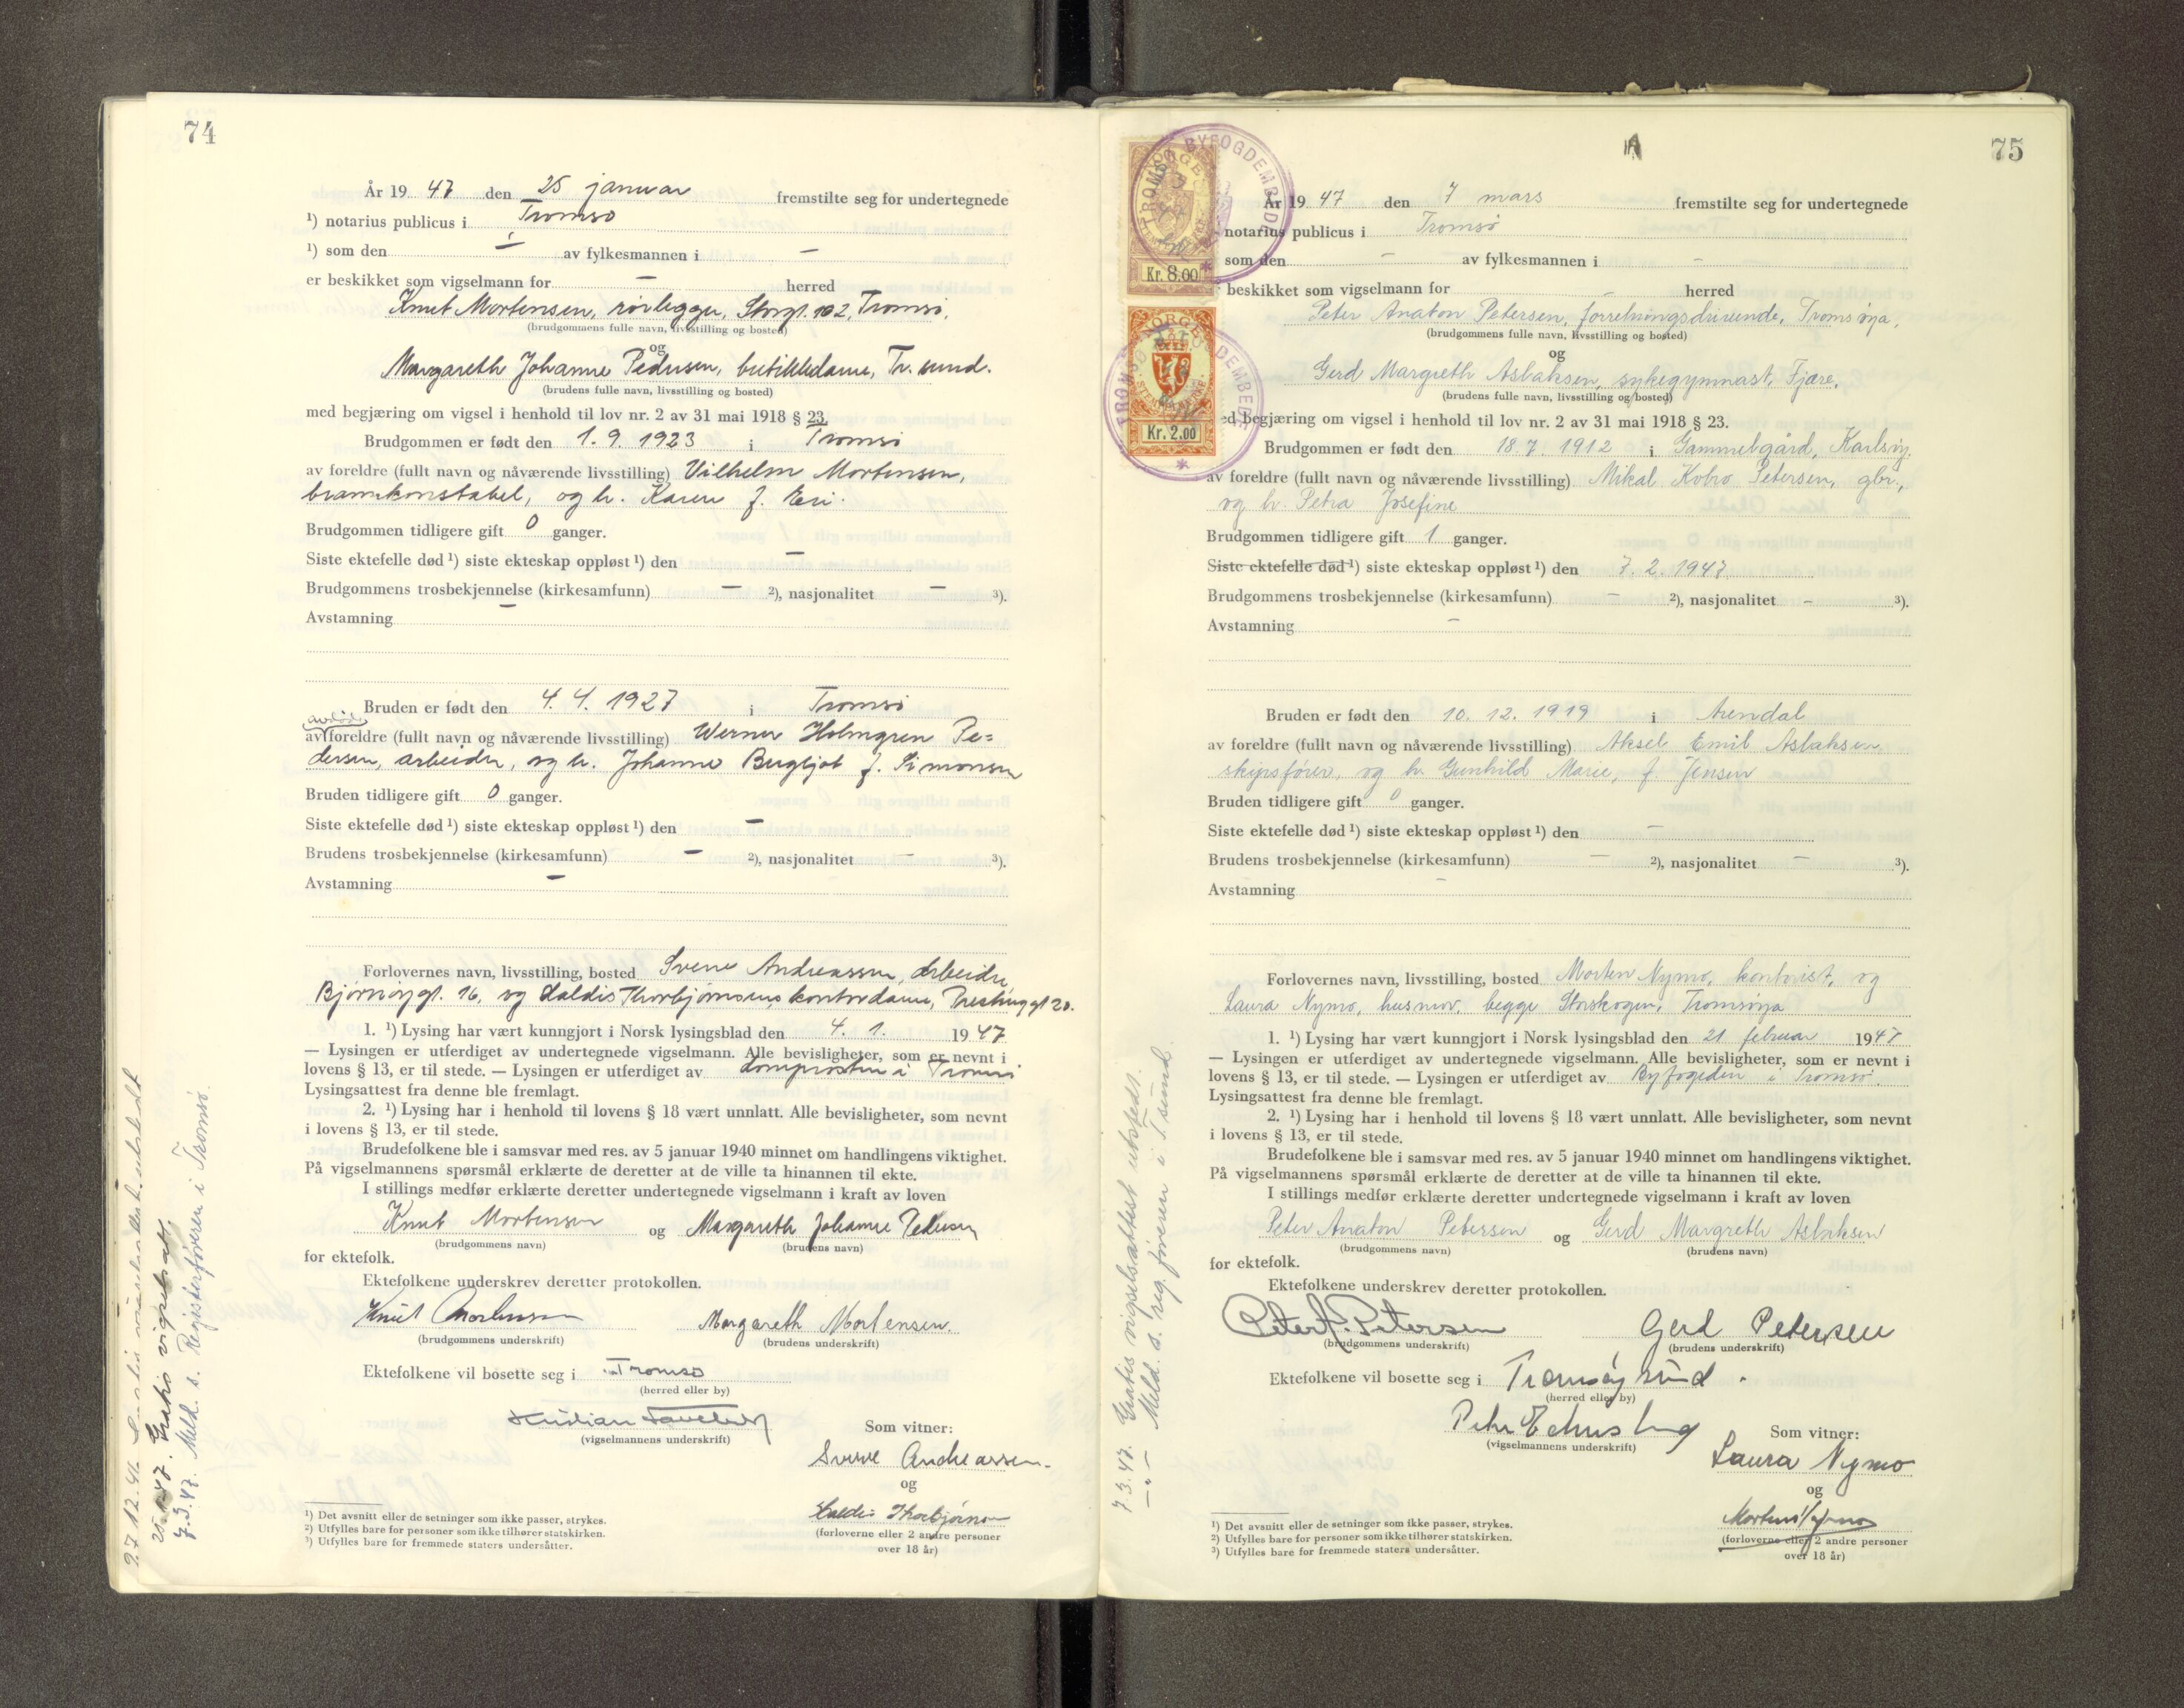 74
År 19 47 den 25 januar fremstilte seg for undertegnede
¹) notarius publicus i Tromsø
¹) som den – av fylkesmannen i –
er beskikket som vigselmann for – herred
Knut Mortensen, rørlegger, Storgt. 102, Tromsø,
(brudgommens fulle navn, livsstilling og bosted)
og
Margareth Johanne Pedersen, butikkdame, Tr. sund.
(brudens fulle navn, livsstilling og bosted)
med begjæring om vigsel i henhold til lov nr. 2 av 31 mai 1918 § 23.
Brudgommen er født den 1. 9. 1923 i Tromsø
av foreldre (fullt navn og nåværende livsstilling) Vilhelm Mortensen,
brannkonstabel, og h. Karen f. Eri.
Brudgommen tidligere gift 0 ganger.
Siste ektefelle død ¹) siste ekteskap oppløst ¹) den –
Brudgommens trosbekjennelse (kirkesamfunn) – ²), nasjonalitet – ³).
Avstamning –
Bruden er født den 4. 4. 1927 i Tromsø
avdøde
av foreldre (fullt navn og nåværende livsstilling) Werner Holmgren Pe=
dersen, arbeider, og h. Johanne Bergljot f. Simonsen
Bruden tidligere gift 0 ganger.
Siste ektefelle død ¹) siste ekteskap oppløst ¹) den –
Brudens trosbekjennelse (kirkesamfunn) – ²), nasjonalitet – ³).
Avstamning –
Forlovernes navn, livsstilling, bosted Sverre Andreassen, arbeider,
Bjørnøygt. 16, og Haldis Thorbjørnsen, kontordame, gt 20.
1. ¹) Lysing har vært kunngjort i Norsk lysingsblad den 4. 1. 19 47
— Lysingen er utferdiget av undertegnede vigselmann. Alle bevisligheter, som er nevnt i
lovens § 13, er til stede. — Lysingen er utferdiget av domprosten i Tromsø
Lysingsattest fra denne ble fremlagt.
2. ¹) Lysing har i henhold til lovens § 18 vært unnlatt. Alle bevisligheter, som nevnt
i lovens § 13, er til stede.
Brudefolkene ble i samsvar med res. av 5 januar 1940 minnet om handlingens viktighet.
På vigselmannens spørsmål erklærte de deretter at de ville ta hinannen til ekte.
I stillings medfør erklærte deretter undertegnede vigselmann i kraft av loven
Knut Mortensen og Margareth Johanne Pedersen
(brudgommens navn) (brudens navn)
for ektefolk.
Ektefolkene underskrev deretter protokollen.
Knut Mortensen Margareth Mortensen.
(brudgommens underskrift) (brudens underskrift)
Ektefolkene vil bosette seg i Tromsø
(herred eller by)
Kristian
(vigselmannens underskrift)
Som vitner:
Sverre Andreassen.
og
Haldis Thorbjørnsen
(forloverne eller 2 andre personer
over 18 år)
¹) Det avsnitt eller de setninger som ikke passer, strykes.
²) Utfylles bare for personer som ikke tilhører statskirken.
³) Utfylles bare for fremmede staters undersåtter.
27.12.46
25.1.47. Gratis vigselsatt.
7.3.47. Meld. s. Registerføreren i Tromsø.
75
TROMSØ BYFOGDEMBEDE
NORGE
Kr. 8.00
TROMSØ BYFOGDEMBEDE
NORGE
STEMPELMERKE
Kr. 2.00
År 19 47 den 7 mars fremstilte seg for undertegnede
notarius publicus i Tromsø
som den – av fylkesmannen i –
beskikket som vigselmann for – herred
Peter Anaton Petersen, forretningsdrivende, Tromsøya,
(brudgommens fulle navn, livsstilling og bosted)
og
Gerd Margreth Aslaksen, sykegymnast, Fjære,
(brudens fulle navn, livsstilling og bosted)
ed begjæring om vigsel i henhold til lov nr. 2 av 31 mai 1918 § 23.
Brudgommen er født den 18. 7. 1912 i Gammelgård, Karlsøy.
av foreldre (fullt navn og nåværende livsstilling) Mikal Kobro Petersen, gbr.,
og h. Petra Josefine
Brudgommen tidligere gift 1 ganger.
Siste ektefelle død ¹) siste ekteskap oppløst ¹) den 7. 2. 1947
Brudgommens trosbekjennelse (kirkesamfunn) – ²), nasjonalitet – ³).
Avstamning –
Bruden er født den 10. 12. 1919 i Arendal
av foreldre (fullt navn og nåværende livsstilling) Aksel Emil Aslaksen
skipsfører, og h. Gunhild Marie, f. Jensen
Bruden tidligere gift 0 ganger.
Siste ektefelle død ¹) siste ekteskap oppløst ¹) den –
Brudens trosbekjennelse (kirkesamfunn) – ²), nasjonalitet – ³).
Avstamning –
Forlovernes navn, livsstilling, bosted Morten Nymo, kontorist, og
Laura Nymo, husmor, begge Storskogen, Tromsøya
1. ¹) Lysing har vært kunngjort i Norsk lysingsblad den 21 februar 1947
— Lysingen er utferdiget av undertegnede vigselmann. Alle bevisligheter, som er nevnt i
lovens § 13, er til stede. — Lysingen er utferdiget av Byfogden i Tromsø.
Lysingsattest fra denne ble fremlagt.
2. ¹) Lysing har i henhold til lovens § 18 vært unnlatt. Alle bevisligheter, som nevnt
i lovens § 13, er til stede.
Brudefolkene ble i samsvar med res. av 5 januar 1940 minnet om handlingens viktighet.
På vigselmannens spørsmål erklærte de deretter at de ville ta hinannen til ekte.
I stillings medfør erklærte deretter undertegnede vigselmann i kraft av loven
Peter Anaton Petersen og Gerd Margreth Aslaksen
(brudgommens navn) (brudens navn)
for ektefolk.
Ektefolkene underskrev deretter protokollen.
Peter A. Petersen Gerd Petersen
(brudgommens underskrift) (brudens underskrift)
Ektefolkene vil bosette seg i Tromsøysund.
(herred eller by)
(vigselmannens underskrift)
Som vitner:
Laura Nymo
og
Morten Nymo
(forloverne eller 2 andre personer
over 18 år)
¹) Det avsnitt eller de setninger som ikke passer, strykes.
²) Utfylles bare for personer som ikke tilhører statskirken.
³) Utfylles bare for fremmede staters undersåtter.
7.3.47. Gratis vigselsattest utstedt.
—„— Meld. s. reg. føreren i T. sund.